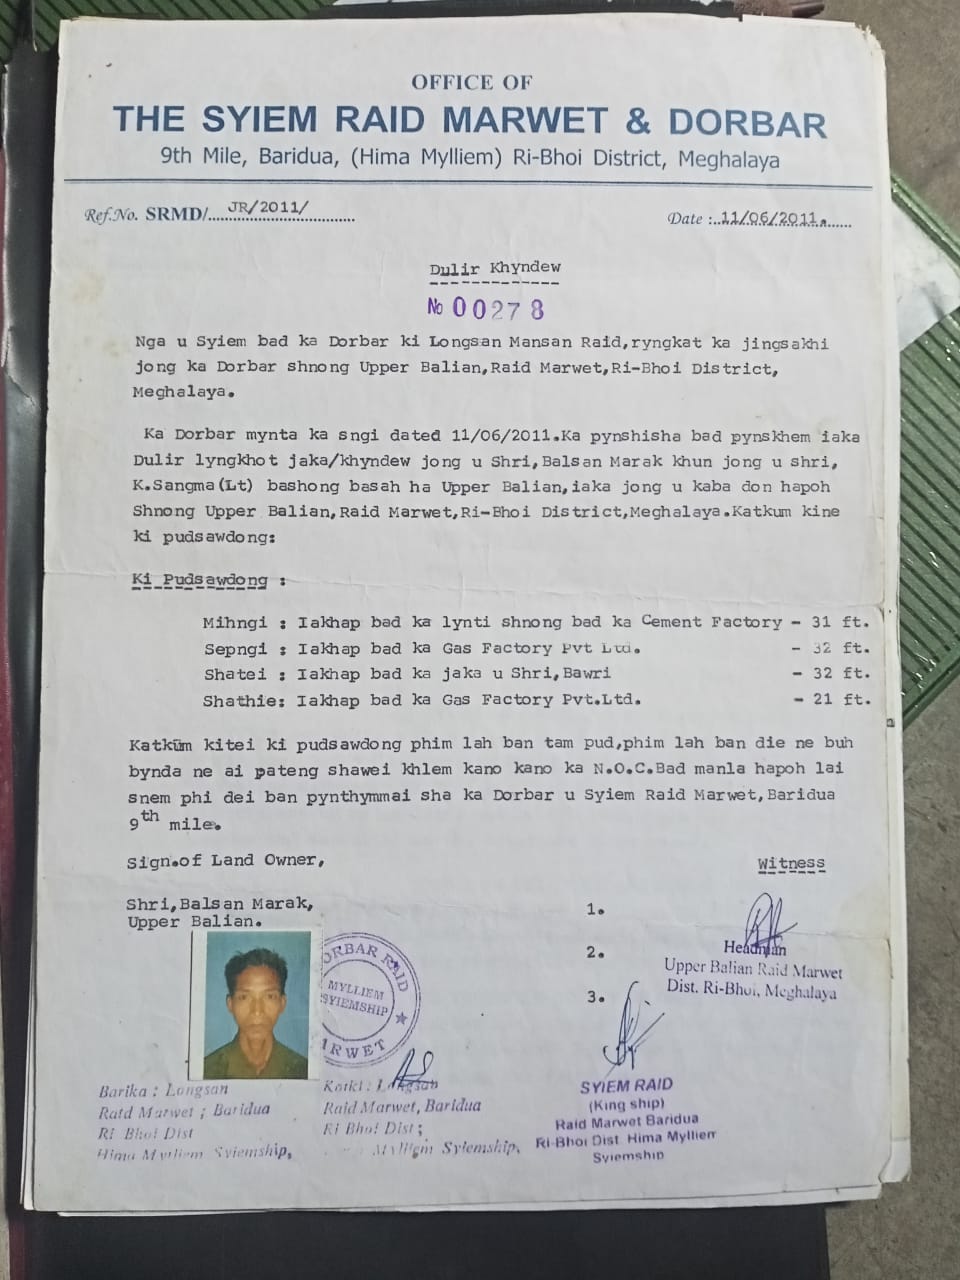 OFFICE OF
THE SYIEM RAID MARWET & DORBAR
9th Mile, Baridua, (Hima Mylliem) Ri-Bhoi District, Meghalaya
Ref.No. SRMD/...JR/2011/...
Date :..11/06/2011.......
Dulir Khyndew
No 00278
Nga u Syiem bad ka Dorbar ki Longsan Mansan Raid,ryngkat ka jingsakhi
jong ka Dorbar shnong Upper Balian,Raid Marwet,Ri-Bhoi District,
Meghalaya.
Ka Dorbar mynta ka sngi dated 11/06/2011.Ka pynshisha bad pynskhem iaka
Dulir lyngkhot jaka/khyndew jong u Shri,Balsan Marak khun jong u shri,
K.Sangma(Lt) bashong basah ha Upper Balian,iaka jong u kaba don hapoh
Shnong Upper Balian,Raid Marwet,Ri-Bhoi District,Meghalaya.Katkum kine
ki pudsawdong:
Ki Pudsawdong :
Mihngi : Iakhap bad ka lynti shnong bad ka Cement Factory - 31 ft.
Sepngi : Iakhap bad ka Gas Factory Pvt Ltd. - 32 ft.
Shatei : Iakhap bad ka jaka u Shri,Bawri - 32 ft.
Shathie: Iakhap bad ka Gas Factory Pvt.Ltd. - 21 ft.
Katkum kitei ki pudsawdong phim lah ban tam pud,phim lah ban die ne buh
bynda ne ai pateng shawei khlem kano kano ka N.O.C.Bad manla hapoh lai
snem phi dei ban pynthymmai sha ka Dorbar u Syiem Raid Marwet,Baridua
9th mile.
Sign.of Land Owner,
Witness
Shri,Balsan Marak,
Upper Balian.
1.
2.
3.
Headman
Upper Balian Raid Marwet
Dist. Ri-Bhoi, Meghalaya
DORBAR RAID
MYLLIEM
SYIEMSHIP
MARWET
Barika : Longsan
Raid Marwet ; Baridua
Ri Bhoi Dist
Hima Mylliem Syiemship,
Kotki : Longsan
Raid Marwet, Baridua
Ri Bhoi Dist ;
Mylliem Syiemship,
SYIEM RAID
(King ship)
Raid Marwet Baridua
Ri-Bhoi Dist. Hima Mylliem
Syiemship